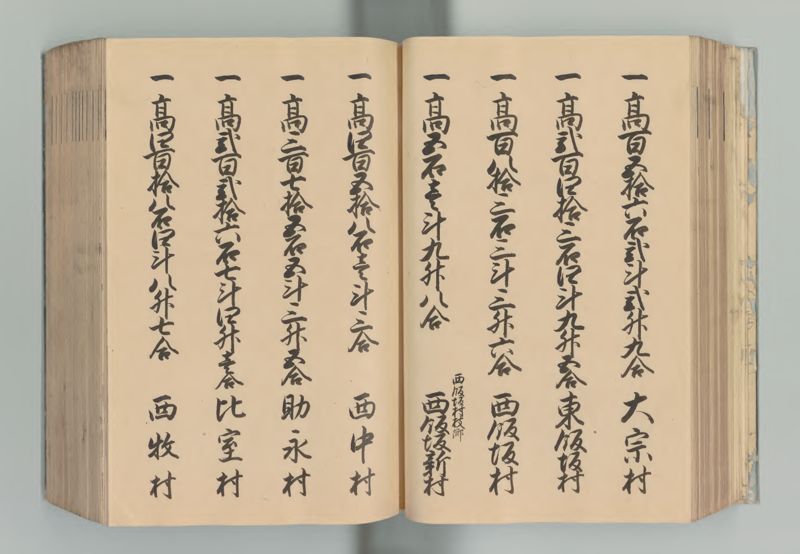 一 髙百五拾六石弐斗弐升九合 大宗村
一 髙弐百四拾三石四斗九升五合 東飯坂村
一 髙百八拾三石三斗三升六合 西飯坂村
西飯坂村枝郷
一 髙五石壱斗九升八合 西飯坂新村
一 髙四百五拾八石壱斗三合 西中村
一 髙三百七拾五石五斗三升五合 助永村
一 髙弐百弐拾六石七斗四升壱合 比室村
一 髙四百拾八石四斗八升七合 西牧村